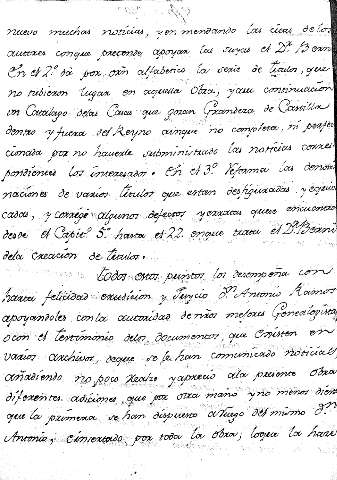 nuevo muchas noticias, y enmendando las citas de los
autores conque pretende apoyar las suyas el Dr. Berni
En el 2º dá por orñ alfabetico la serie de titulos, que
no tubieron lugar en aquella obra, y a su continuacion
un Catalogo de las Casas que gozan Grandeza de Castilla
dentro y fuera del Reyno aunque no completa, ni perfec-
cionada por no haverle subministrado las noticias corres-
pondientes los interesados. En el 3º reforma las denomi-
naciones de varios titulos que estan desfiguradas, y equivo-
cadas, y corrige algunos defectos y erratas que se encuentran
desde el Capitº 5º hasta el 22. en que trata el Dr. Berni
de la creacion de titulos.
Todos estos puntos los desempeña con
harta felicidad erudicion y Juycio Dn. Antonio Ramos
apoyandoles con la autoridad de nros mejores Genealogistas,
o con el testimonio de los documentos, que existen en
varios archivos, de que se le han comunicado noticias
añadiendo no poco realze y aprecio a la presente obra
diferentes adiciones, que por otra mano y no menos diestra
que la primera se han dispuesto a ruego del mismo Dn.
Antonio, y enxertado por toda la obra; los que la han